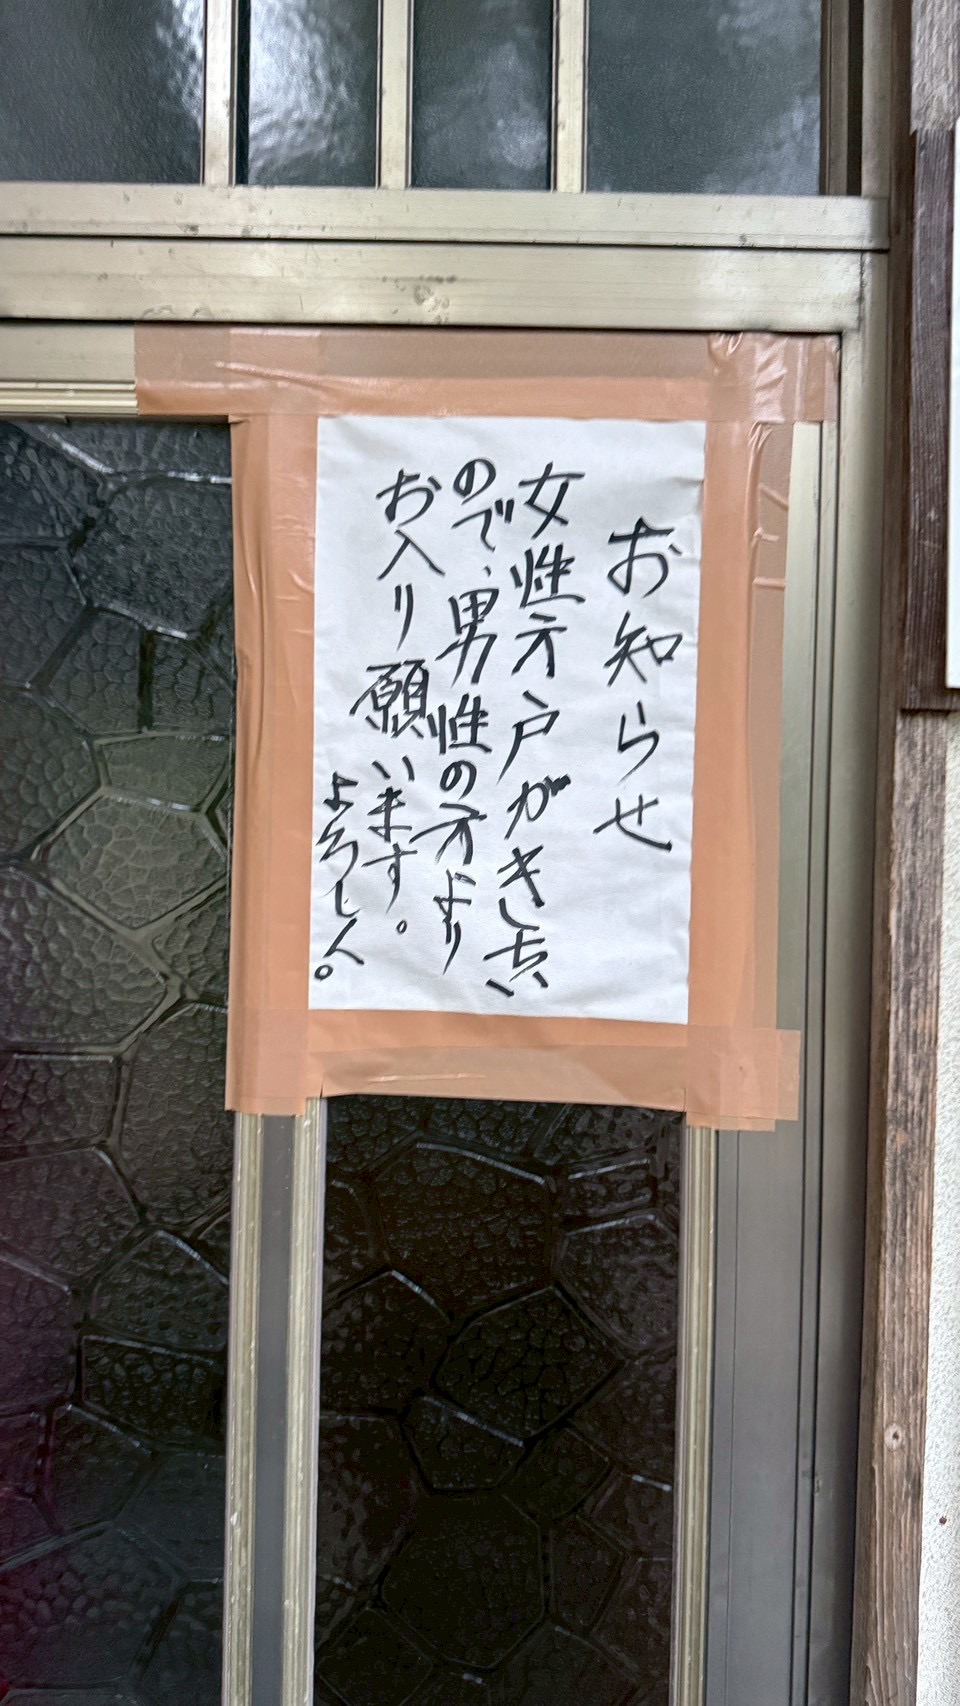 お知らせ
女性方戸がきしむ
ので、男性の方より
お入り願います。
よろしく。